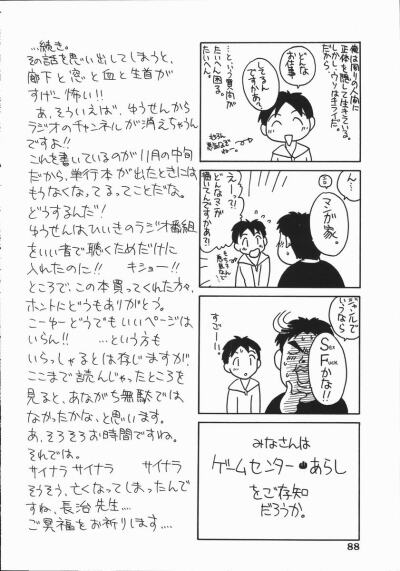 俺は周りの人間に
正体を隠して生きている。
しかし、ウソはキライだ。
だから、
どんな
お仕事
してるん
ですかあ?
…という質問が
たいへん困る。
たいへん。
ん…
マンガ家。
えーっ?!
どんなマンガ
描いてんですかあ?!
ジャンルで
いうなら
SFかな!!
Sex
Fuck
すごー。
みなさんは
ゲームセンターあらし
をご存知
だろうか。
…続き。
その話を思い出してしまうと、
廊下と窓と血と生首が
すげーこ怖い!!
あ、そういえば、ゆうせんから
ラジオのチャンネルが消えちゃうん
ですよ!!
これを書いているのが11月の中旬
だから、単行本が出たときには
もうなくな,てるってことだな。
どうするんだ!
ゆうせんはひいきのラジオ番組
をいい音で聴くためだけに
入れたのに!! キショー!!
ところで、この本買ってくれた方々、
ホントにどうもありがとう。
こーゆーどうでもいいページは
いらん!! …という方も
いらっしゃるとは存じますが、
ここまで読んじゃったところを
見ると、あながち無駄では
なかったかな、と思います。
あ、そろそろお時間ですね。
それでは。
サイナラ サイナラ サイナラ
そうそう、亡くなってしまったんで
すね、長治先生…
ご冥福をお祈りします….
88